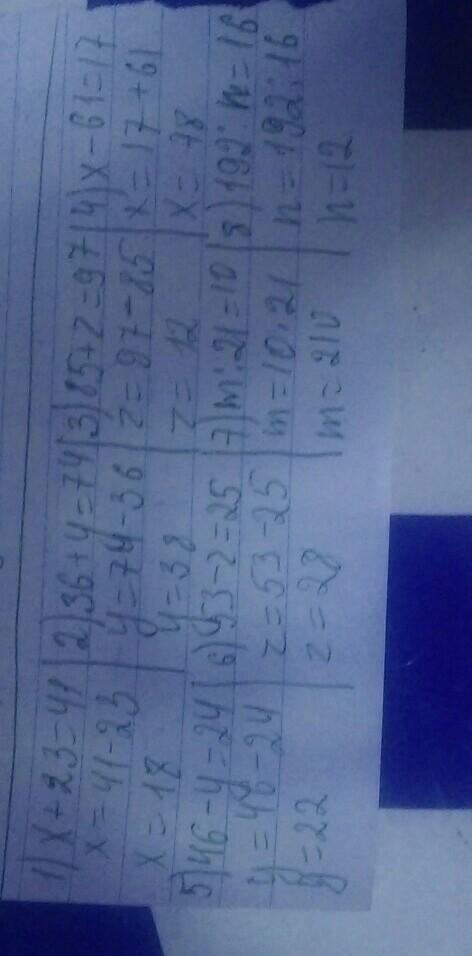 1) x + 23 = 41 | 2) 36 + y = 74 | 3) 85 + z = 97 | 4) x - 61 = 17
x = 41 - 23 | y = 74 - 36 | z = 97 - 85 | x = 17 + 61
x = 18 | y = 38 | z = 12 | x = 78
5) 46 - y = 24 | 6) 53 - z = 25 | 7) m : 21 = 10 | 8) 192 : n = 16
y = 46 - 24 | z = 53 - 25 | m = 10 · 21 | n = 192 : 16
y = 22 | z = 28 | m = 210 | n = 12